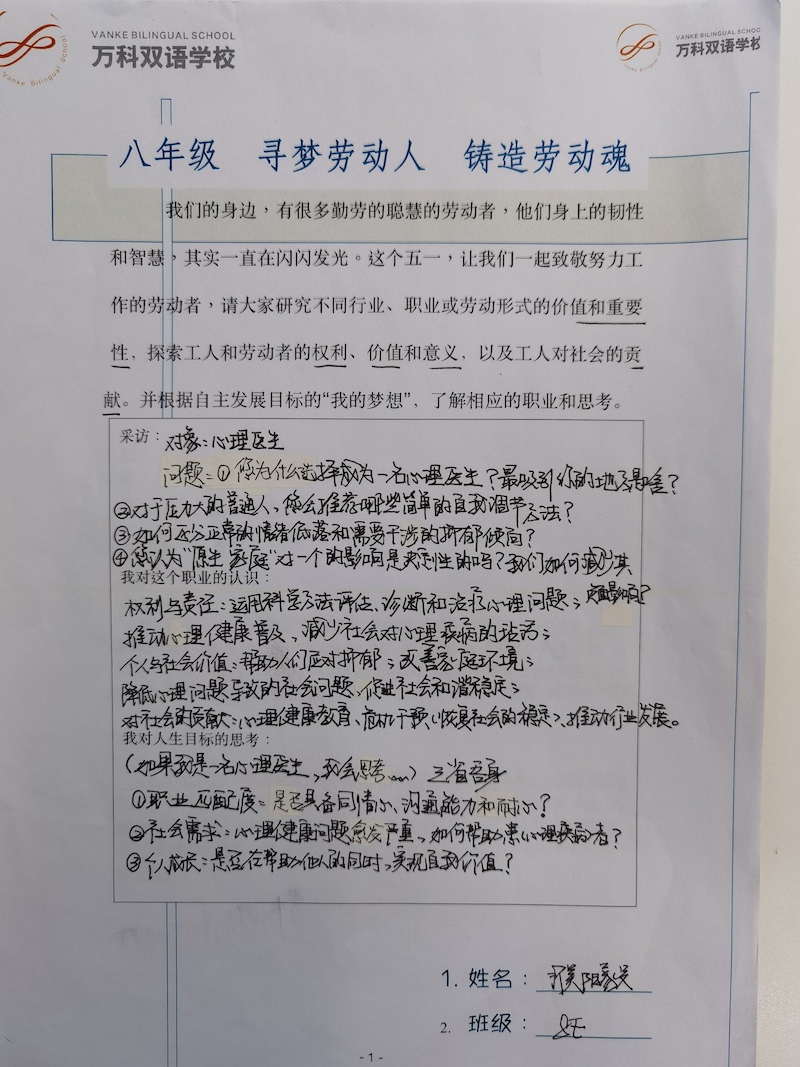 VANKE BILINGUAL SCHOOL
万科双语学校
Vanke Bilingual School
VANKE BILINGUAL SCHOO
万科双语学校
八年级 寻梦劳动人 铸造劳动魂
我们的身边，有很多勤劳的聪慧的劳动者，他们身上的韧性
和智慧，其实一直在闪闪发光。这个五一，让我们一起致敬努力工
作的劳动者，请大家研究不同行业、职业或劳动形式的价值和重要
性，探索工人和劳动者的权利、价值和意义，以及工人对社会的贡
献。并根据自主发展目标的“我的梦想”，了解相应的职业和思考。
采访：对象：心理医生
问题：①您为什么选择成为一名心理医生？最吸引你的地方是啥？
②对于压力大的普通人，您会推荐哪些简单的自我调节方法？
③如何区分正常的情绪低落和需要干涉的抑郁倾向？
④您认为“原生家庭”对一个的影响是决定性的吗？我们如何减少其
负面影响？
我对这个职业的认识：
权利与责任：运用科学方法评估、诊断和治疗心理问题；
推动心理健康普及，减少社会对心理疾病的
个人与社会价值：帮助人们应对抑郁；改善家庭环境；
降低心理问题导致的社会问题，促进社会和谐稳定；
对社会的贡献：心理健康教育、危机干预（恢复社会的稳定）、推动行业发展。
我对人生目标的思考：
（如果我是一名心理医生，我会思考……）三省吾身
①职业匹配度：是否具备同情心，沟通能力和耐心？
②社会需求：心理健康问题愈发严重，如何帮助患心理疾病者？
③个人成长：是否在帮助他人的同时，实现自我价值？
1. 姓名：濮阳
2. 班级：
- 1 -